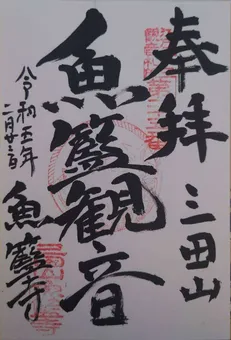 奉拝
三田山
魚籃観音
魚籃寺
令和五年
二月廿三日